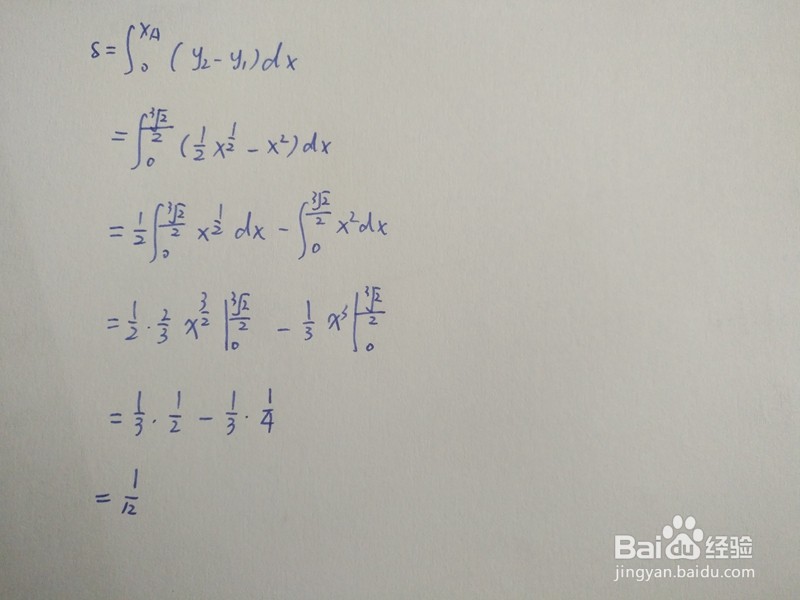 S = ∫₀^{x_A} (y₂ - y₁) dx
= ∫₀^{∛2/2} (1/2 x^{1/2} - x²) dx
= 1/2 ∫₀^{∛2/2} x^{1/2} dx - ∫₀^{∛2/2} x² dx
= 1/2 · 2/3 x^{3/2} |₀^{∛2/2} - 1/3 x³ |₀^{∛2/2}
= 1/3 · 1/2 - 1/3 · 1/4
= 1/12
Baidu经验
jingyan.baidu.com